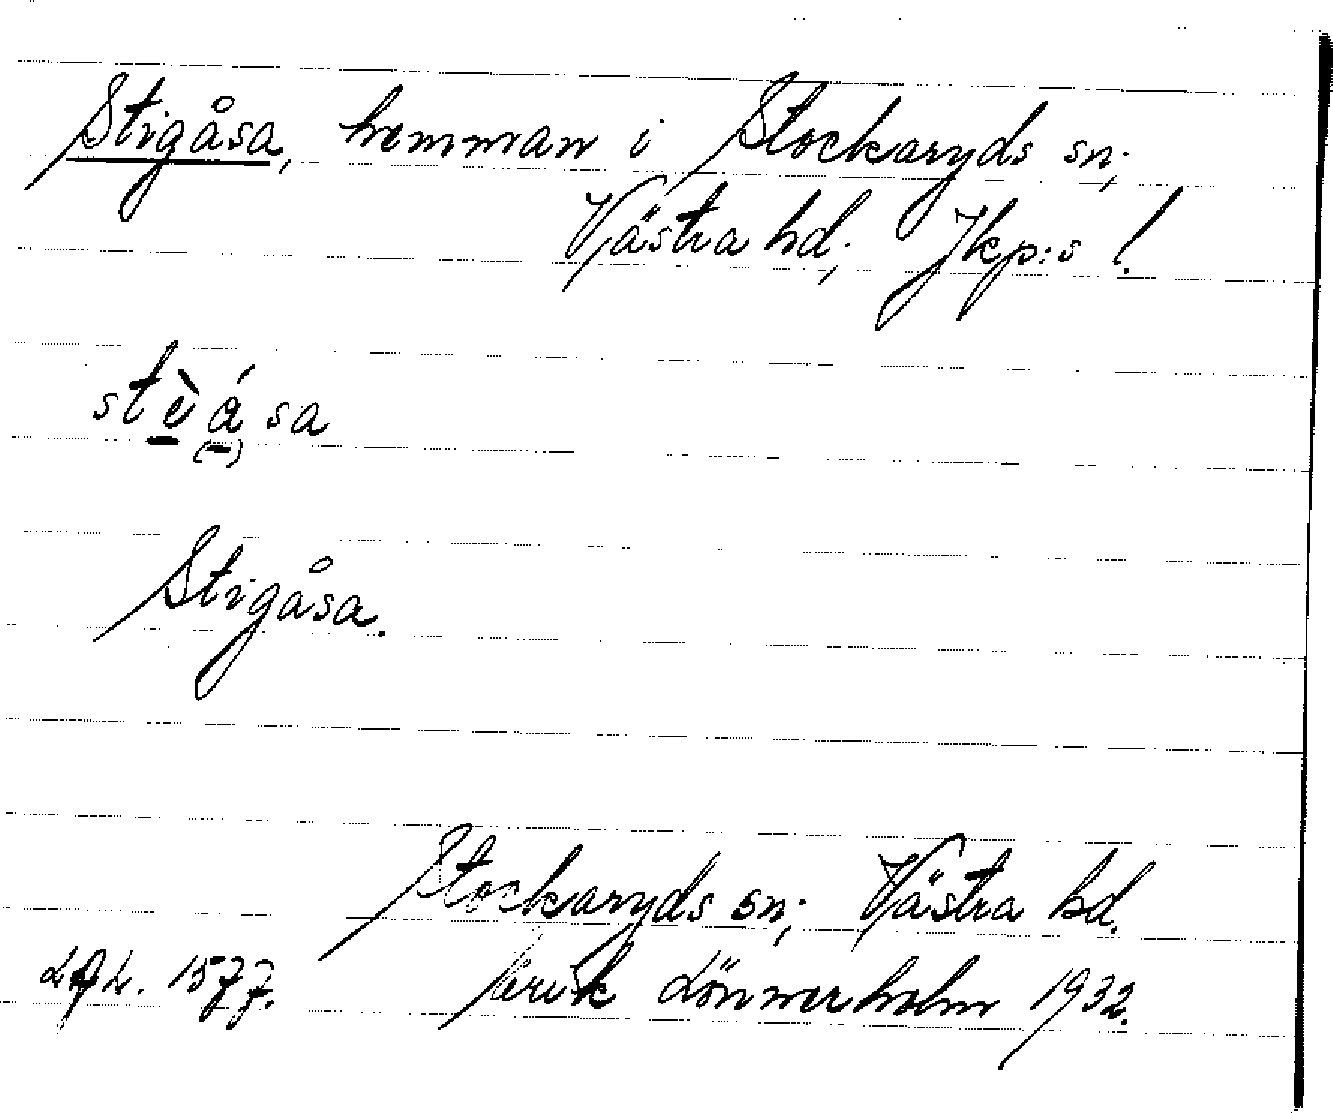 Stigåsa, hemman i Stockaryds sn;
Västra hd; Jkp:s l.
stè̱á̱sa
Stigåsa.
Stockaryds sn; Västra hd.
1577. Erik Lönnerholm 1932.